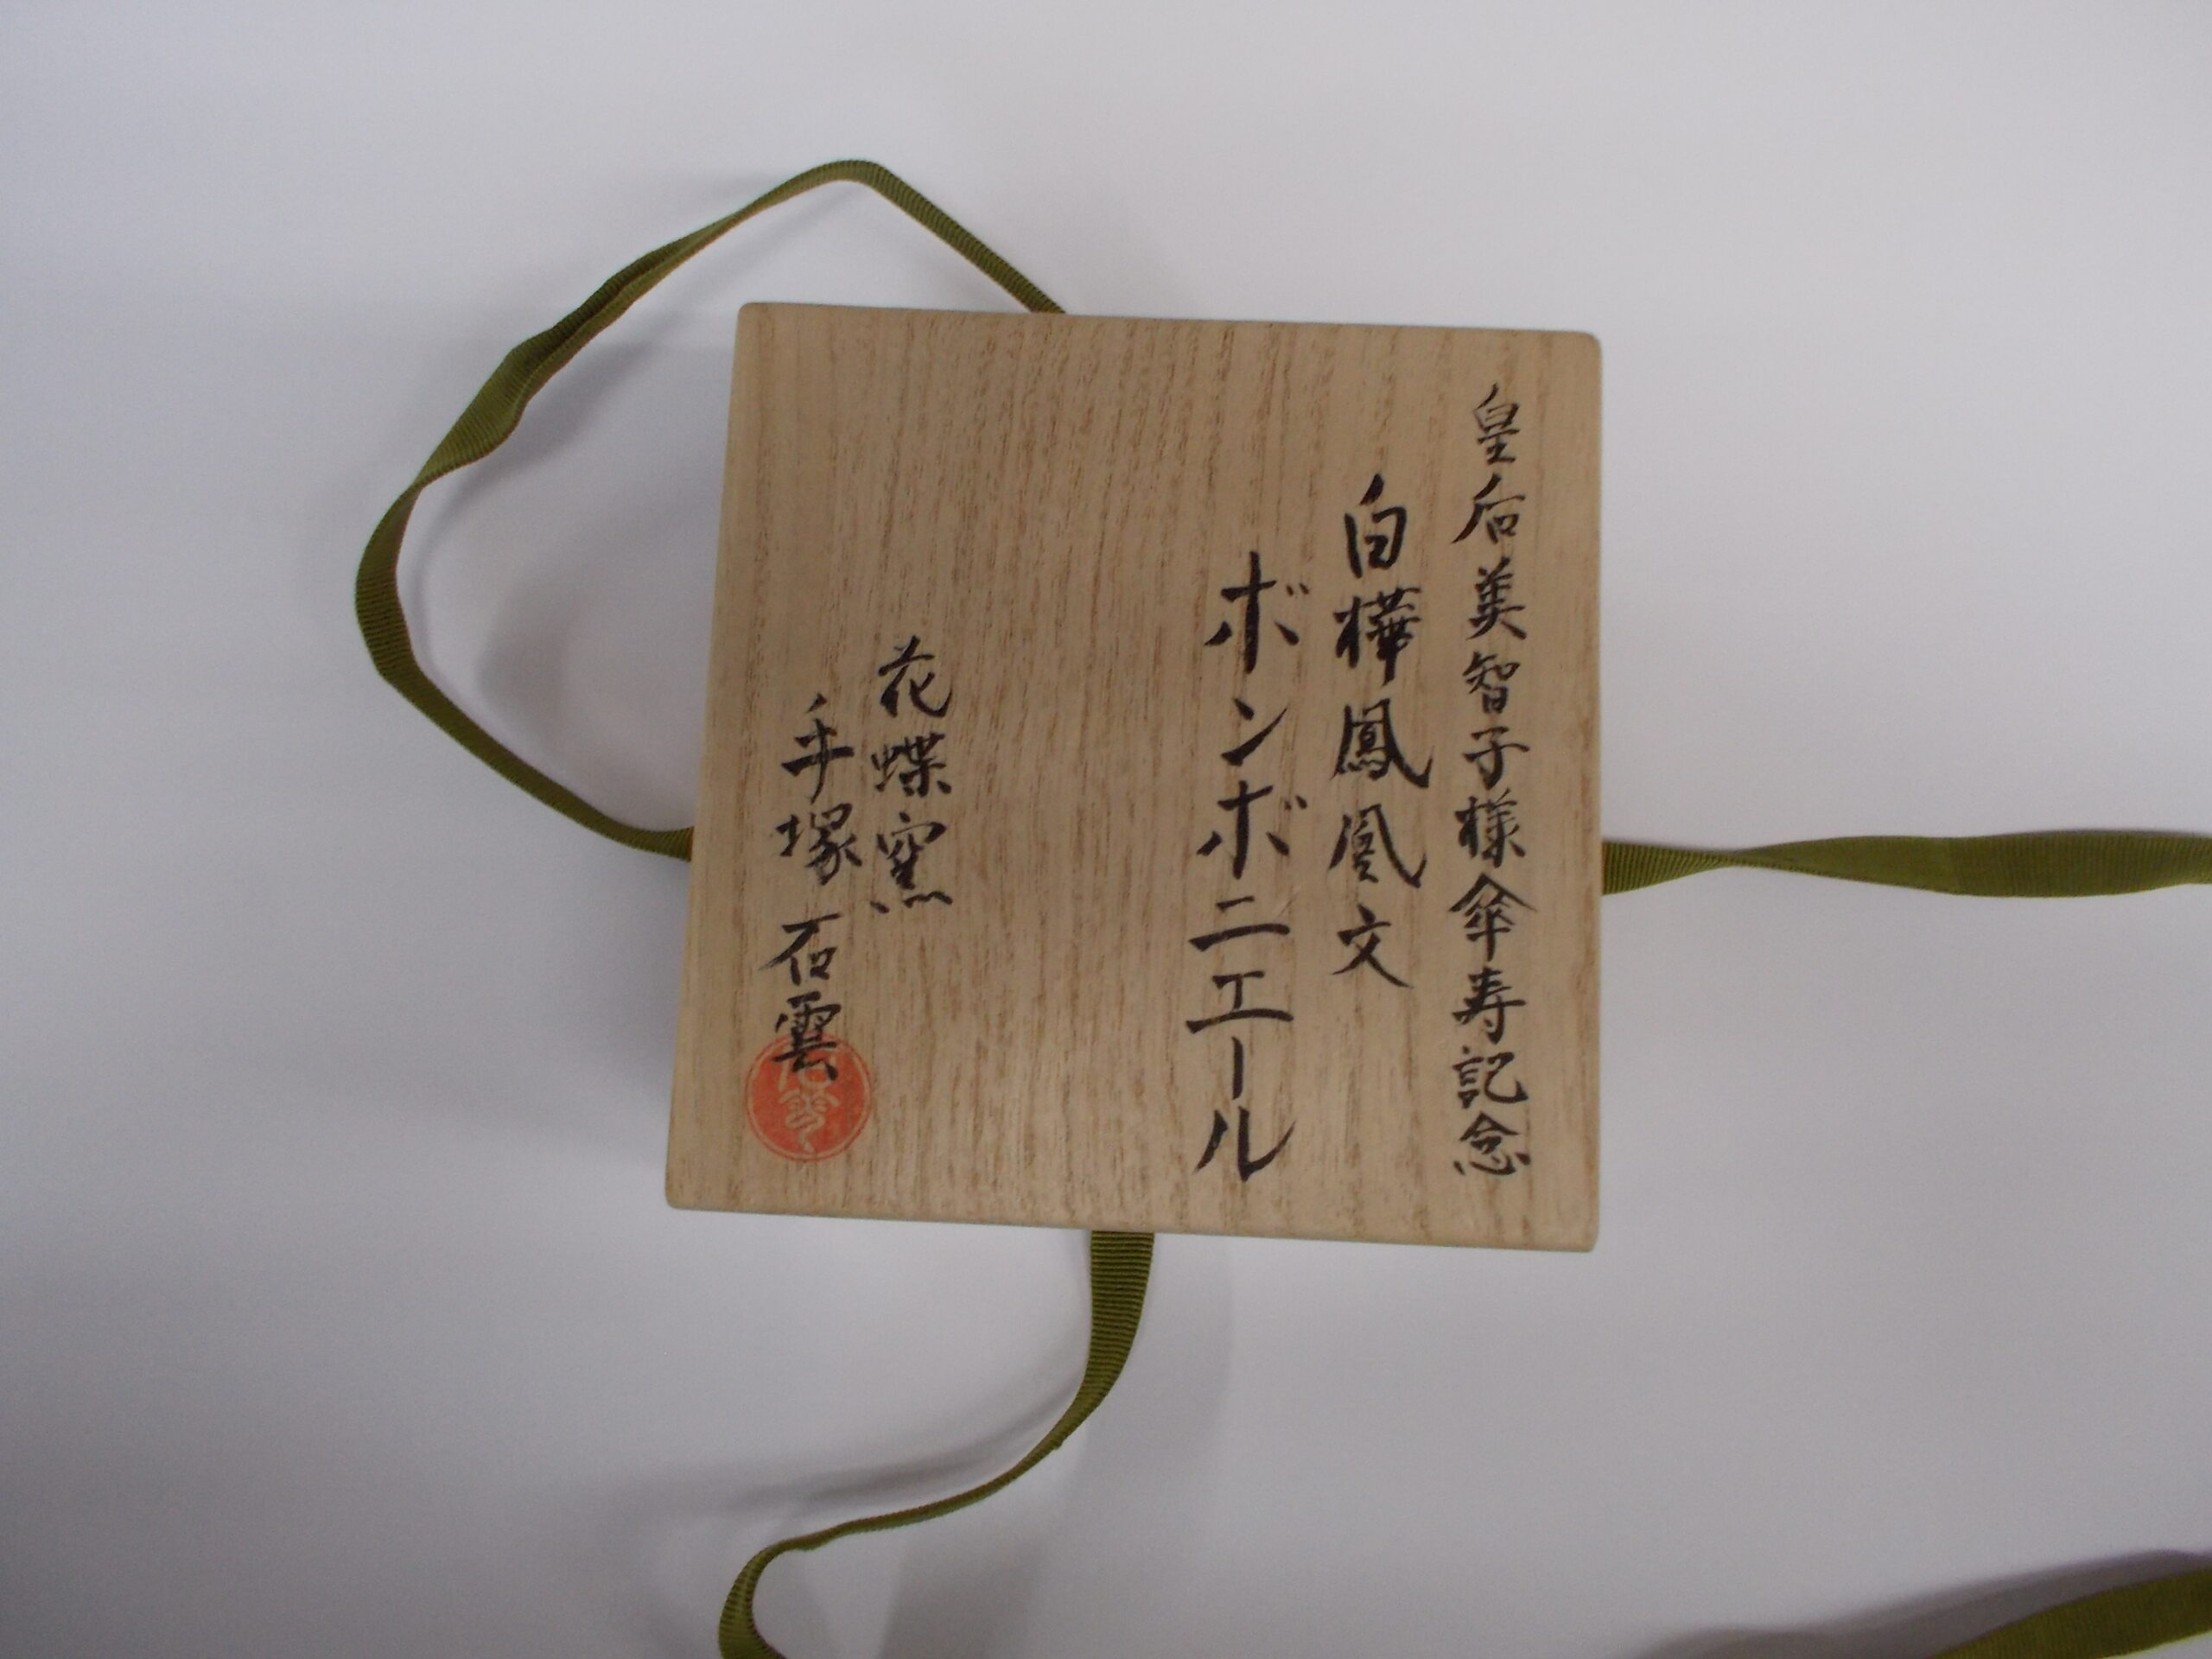 皇后美智子様傘寿記念
白樺鳳凰文
ボンボニエール
花蝶窯
手塚石雲